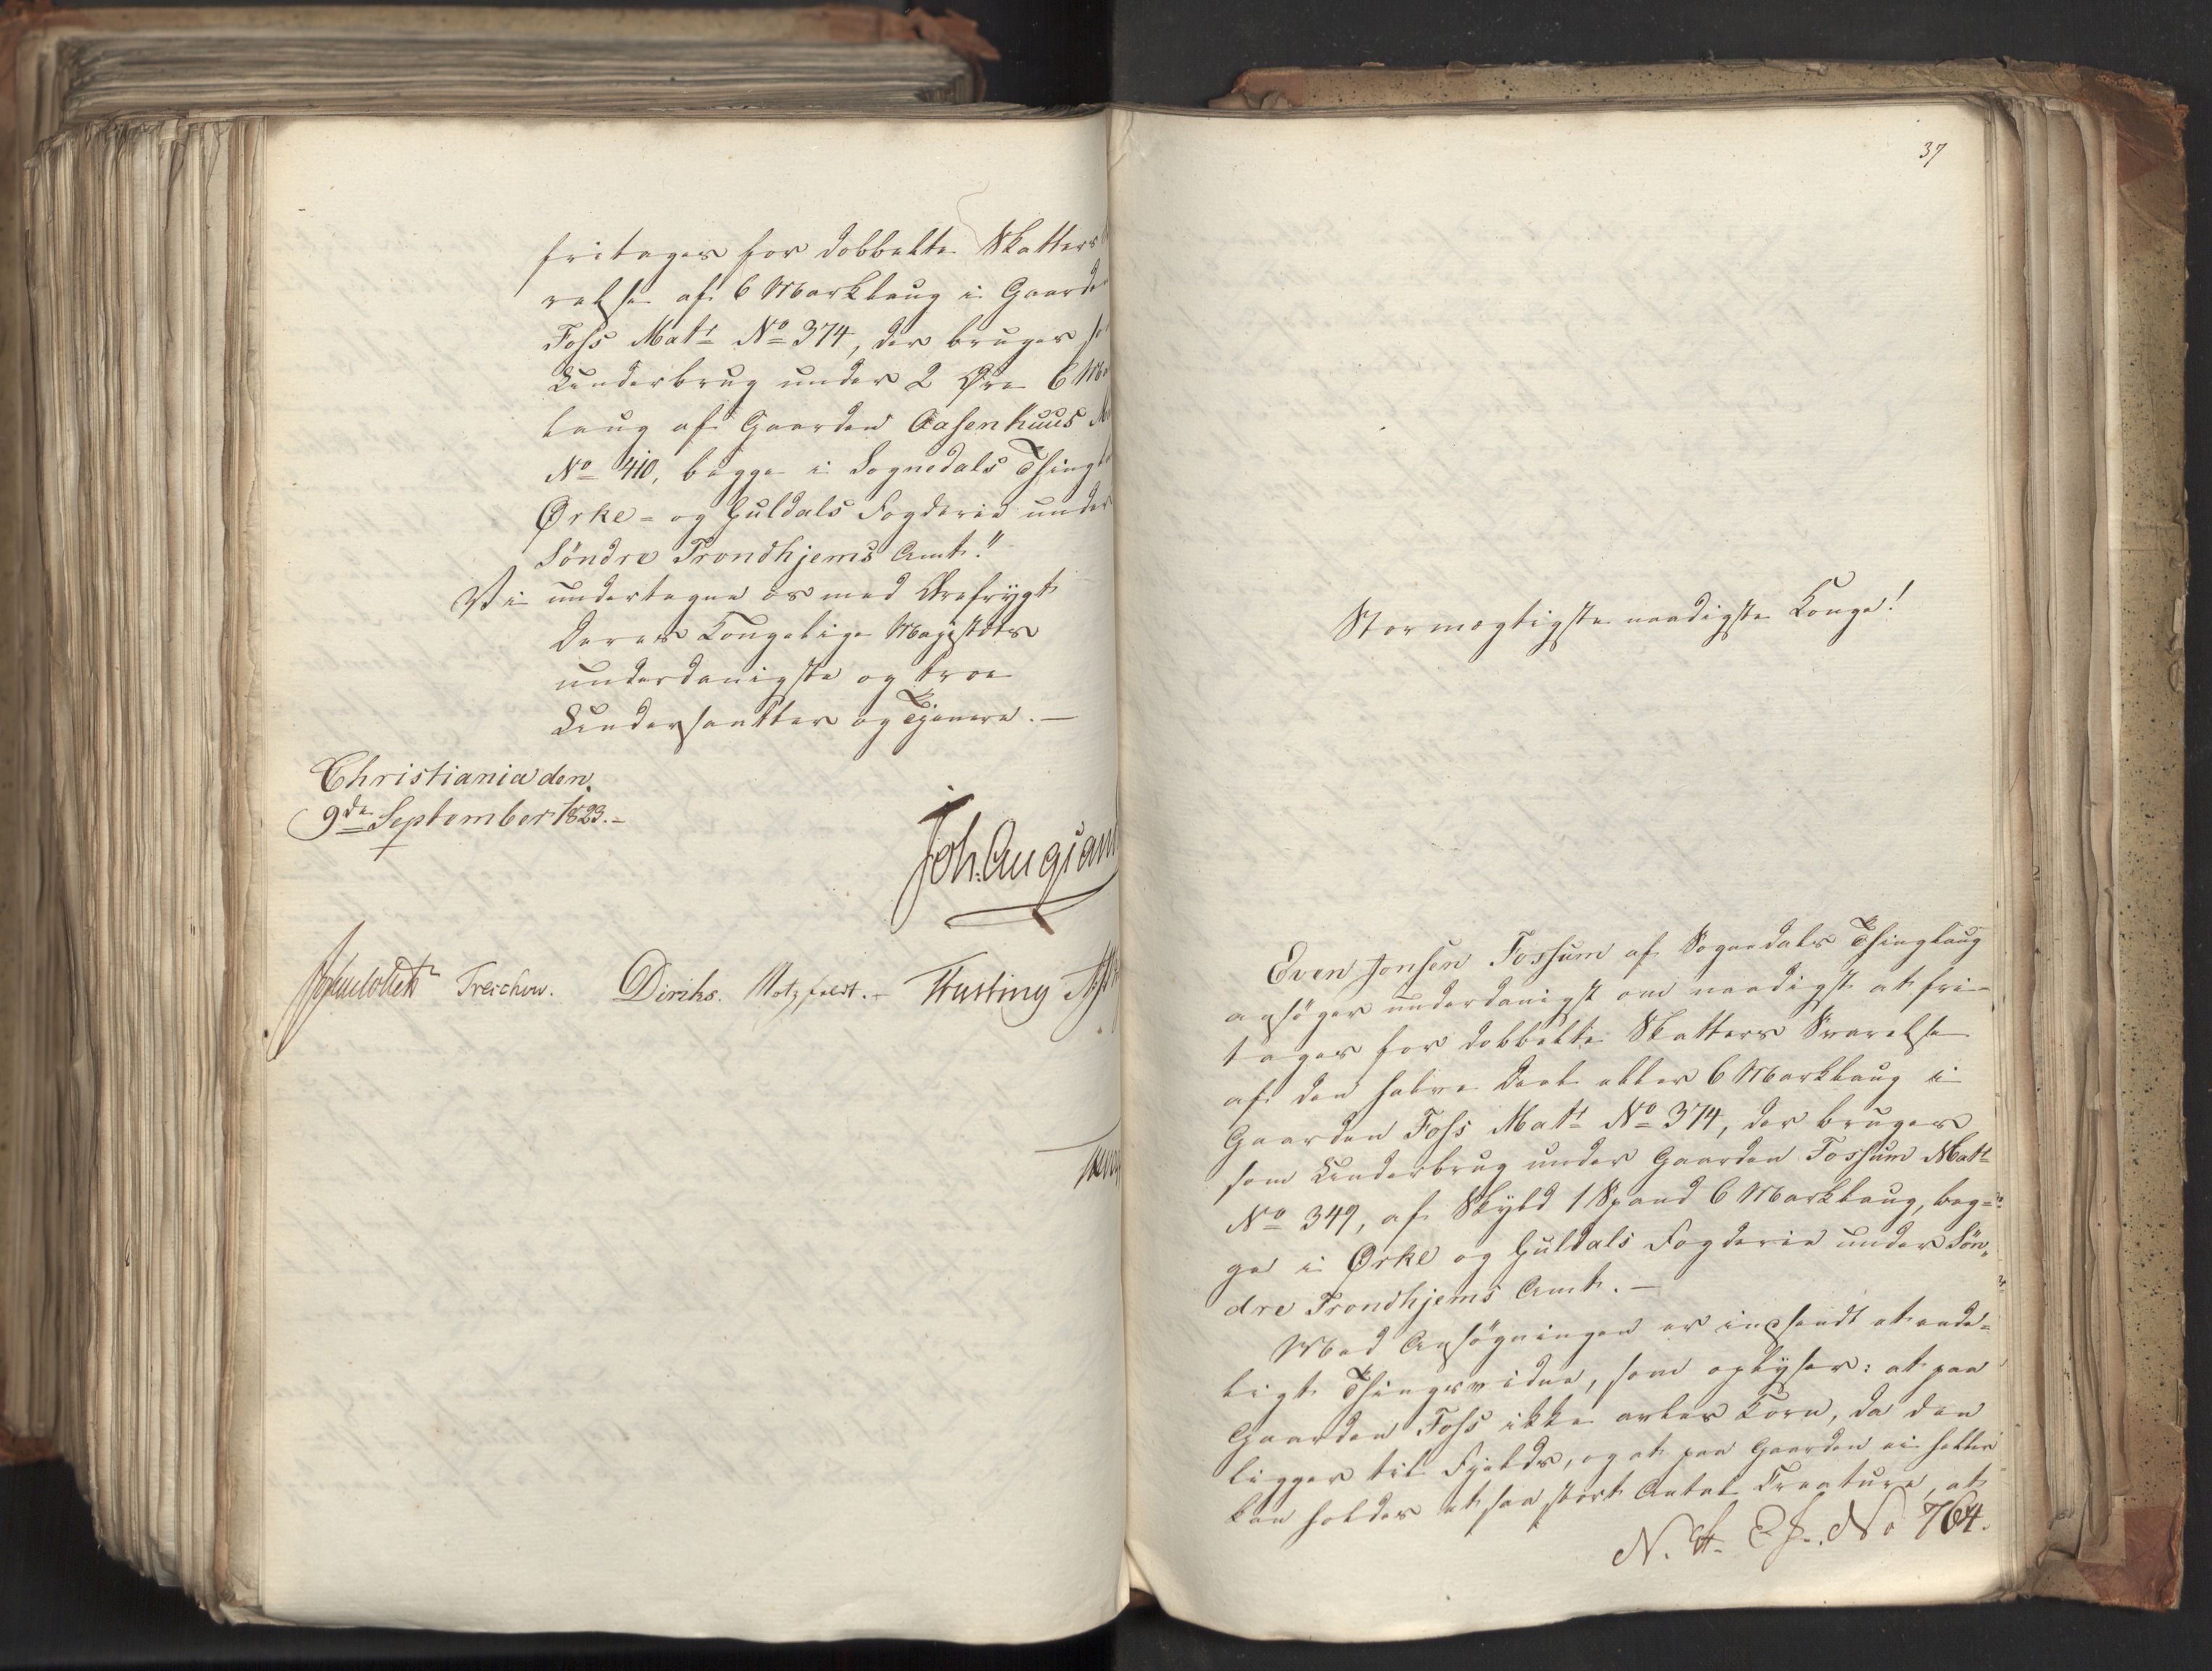 fritages for dobbelte Skatters
relse af 6 Marklaug i Gaarden
Foss Matr No 374, der bruges
Underbrug under 2 Øre 6
laug af Gaarden Aasenhuus
No 410, begge i Sognedals
Ørke- og Guldals Fogderie under
Söndre Trondhjems Amt."
Vi undertegne os med Ærefrygt
Deres Kongelige Majestæts
underdanigste og troe
Undersaatter og Tjenere. —
Christiania den
9de September 1823. –
Joh. Aug
Treschow. Diriks. Motzfeldt. –
37
Stormægtigste naadigste Konge!
Even Jonsen Fossum af Sognedals Thinglaug
ansöger underdanigst om naadigst at fri-
tages for dobbelte Skatters Svarelse
af den halve Deel eller 6 Marklaug i
Gaarden Foss Matr No 374, der bruges
som Underbrug under Gaarden Fossum Matr
No 349, af Skyld 1 Spand 6 Marklaug, beg-
ge i Ørke og Guldals Fogderie under Sön„
dre Trondhjems Amt. —
Med Ansögningen er indsendt et eede-
ligt Thingsvidne, som oplyser: at paa
Gaarden Foss ikke avles Korn, da den
ligger til Fjelds, og at paa Gaarden ei heller
kan holdes et saa stort Antal Creature, at
No 764.